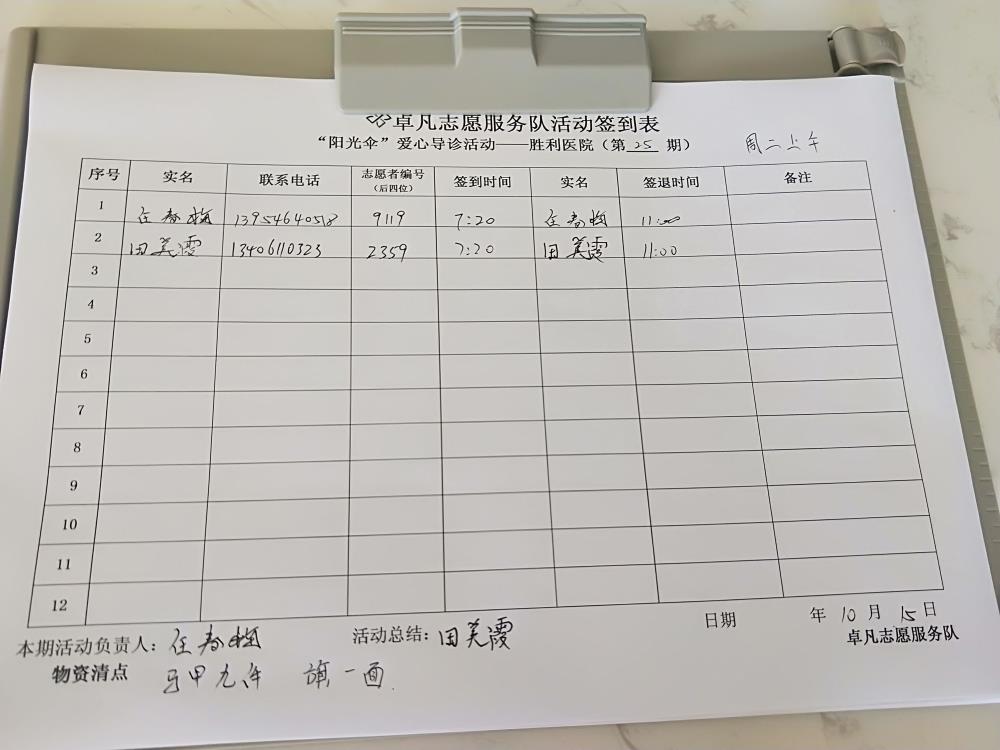 卓凡志愿服务队活动签到表
“阳光伞”爱心导诊活动——胜利医院（第 25 期） 周二上午
序号 实名 联系电话 志愿者编号（后四位） 签到时间 实名 签退时间 备注
1 任春梅 13954640518 9119 7:20 任春梅 11:00
2 田美霞 13406110323 2359 7:20 田美霞 11:00
3
4
5
6
7
8
9
10
11
12
日期 年 10 月 15 日
本期活动负责人：任春梅 活动总结：田美霞 卓凡志愿服务队
物资清点 马甲九件 旗一面